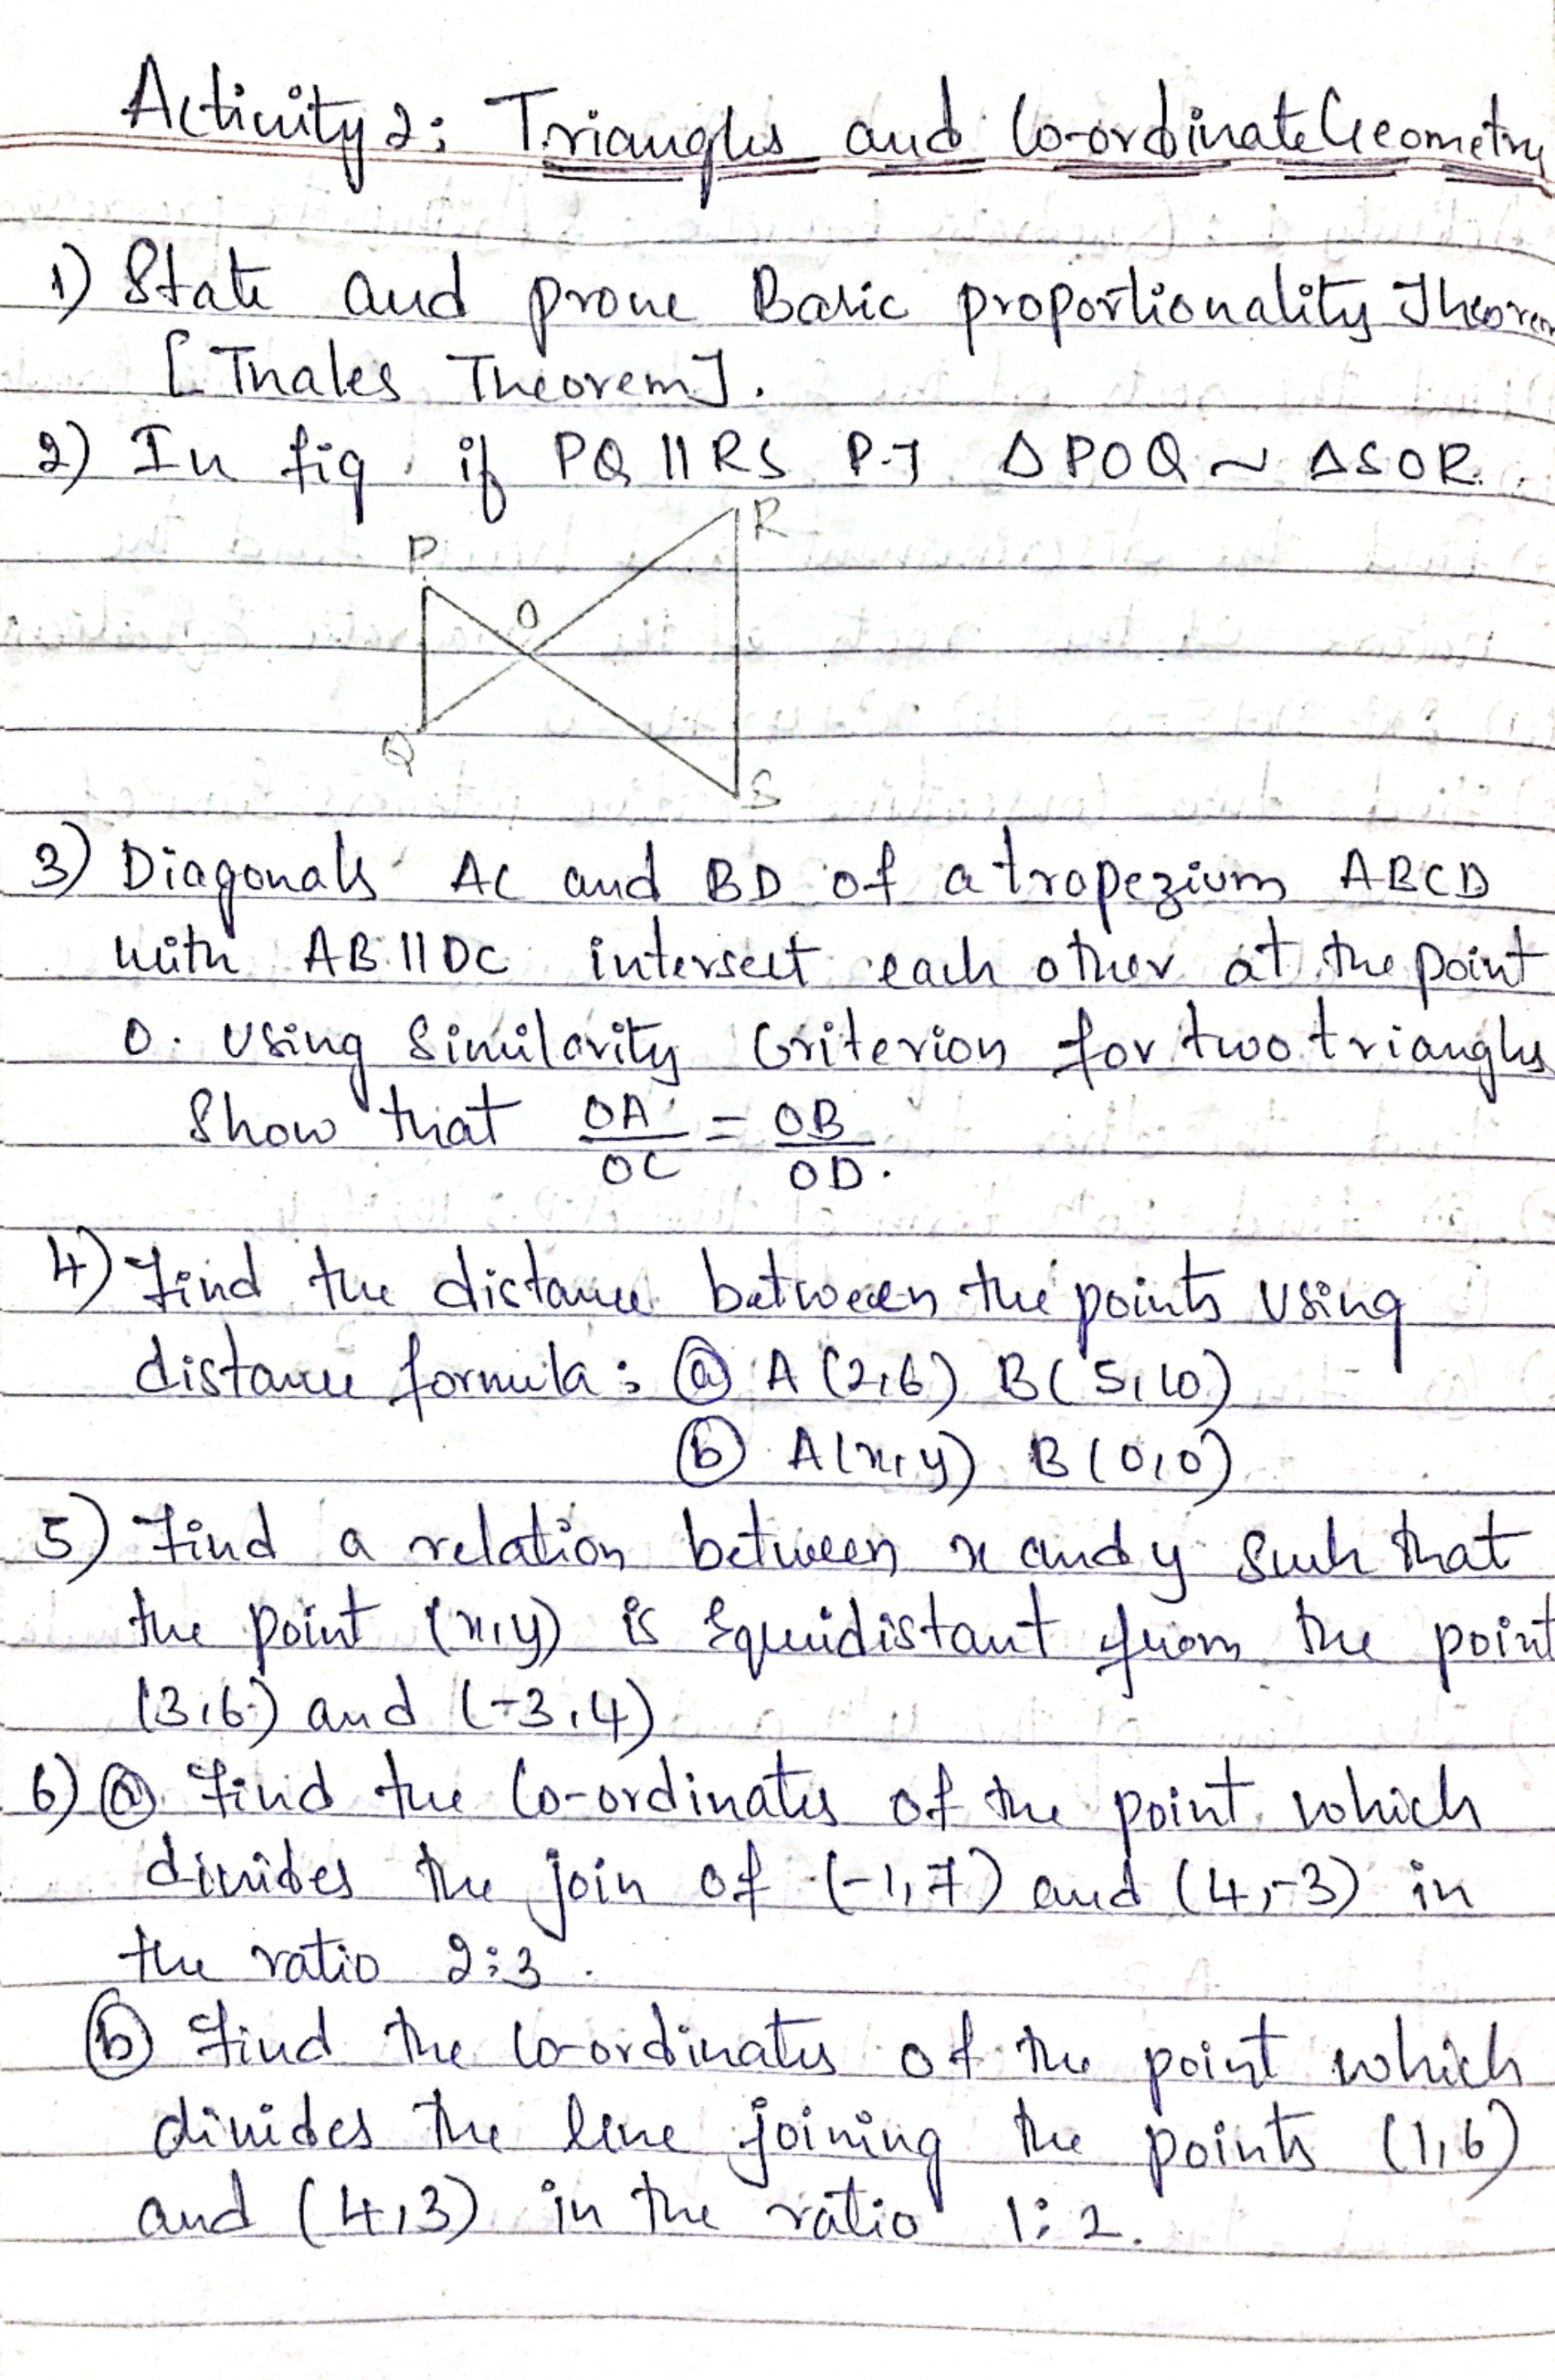 Activity 2: Triangles and Co-ordinate Geometry
1) State and prove Basic proportionality Theorem
[Thales Theorem].
2) In fig. if PQ || RS P.T ΔPOQ ~ ΔSOR.
R
P
O
Q
S
3) Diagonals AC and BD of a trapezium ABCD
with AB || DC intersect each other at the point
O. Using Similarity Criterion for two triangles
Show that OA/OC = OB/OD.
4) Find the distance between the points Using
distance formula: ⓐ A (2,6) B(5,10)
ⓑ A(x,y) B(0,0)
5) Find a relation between x and y Such that
the point (x,y) is Equidistant from the point
(3,6) and (-3,4)
6) ⓐ Find the Co-ordinates of the point which
divides the join of (-1,7) and (4,-3) in
the ratio 2:3.
ⓑ Find the Co-ordinates of the point which
divides the line joining the points (1,6)
and (4,3) in the ratio 1:2.